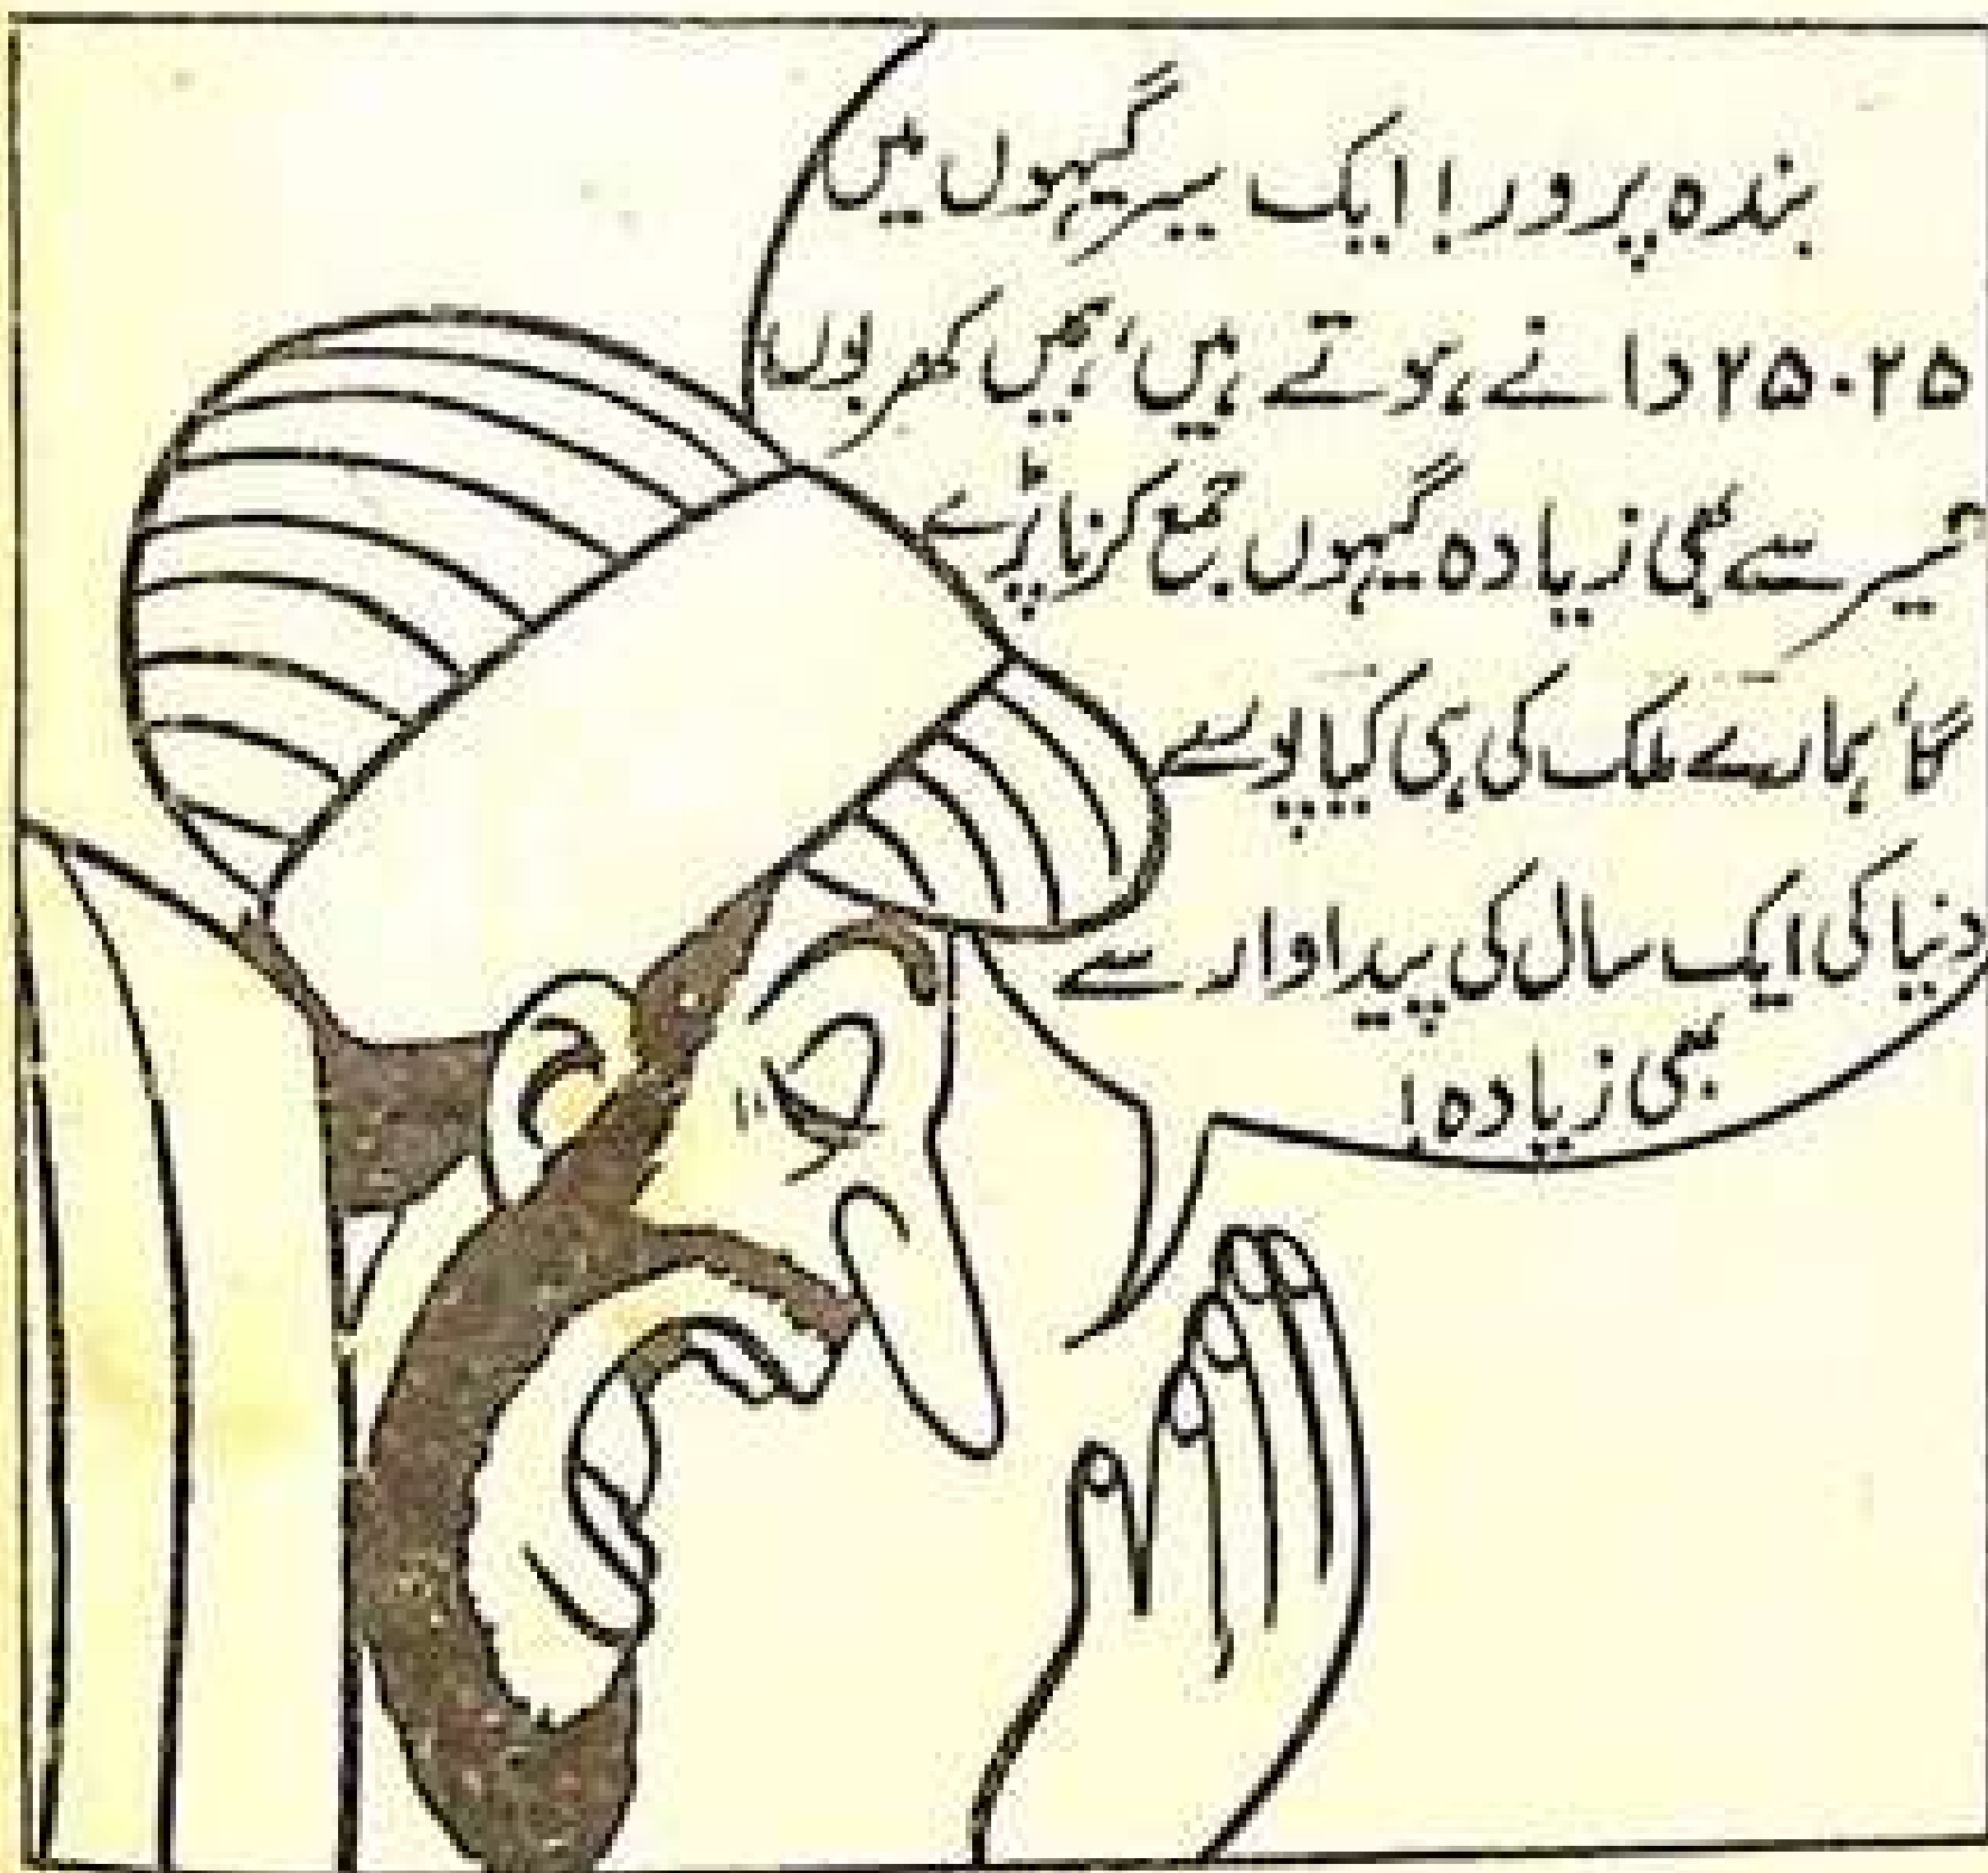 بندہ پرور! ایک سیر گیہوں میں
۲۵۰۲۵ دانے ہوتے ہیں، ہمیں کھربوں
سیر سے بھی زیادہ گیہوں جمع کرنا پڑے
گا، ہمارے ملک کی ہی کیا پورے
دنیا کی ایک سال کی پیداوار سے
بھی زیادہ!